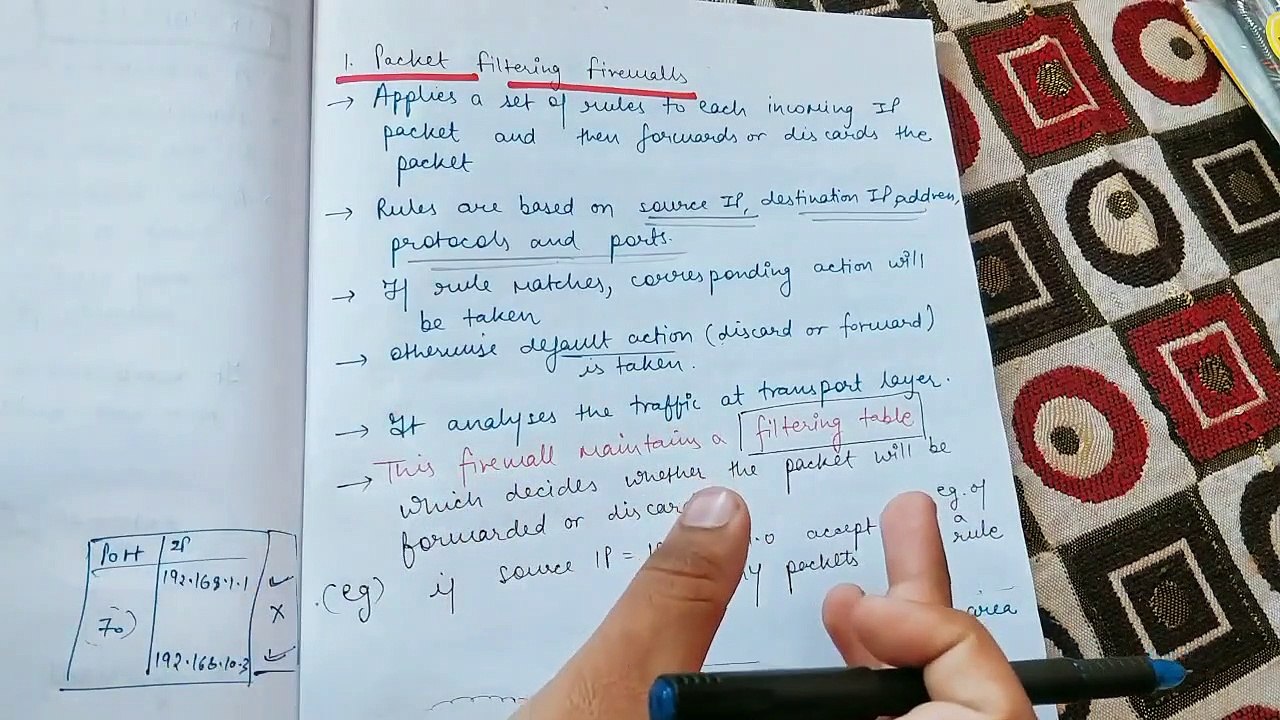 1. Packet filtering firewalls
→ Applies a set of rules to each incoming IP
packet and then forwards or discards the
packet
→ Rules are based on source IP, destination IP address,
protocols and ports.
→ If rule matches, corresponding action will
be taken
→ otherwise default action (discard or forward)
is taken.
→ It analyses the traffic at transport layer.
→ This firewall maintains a filtering table
which decides whether the packet will be
forwarded or discar
(eg) if source IP = .0 accept
packets
eg. of
a
rule
area
Port IP
192.168.1.1 ✓
70 X
192.168.10.3 ✓